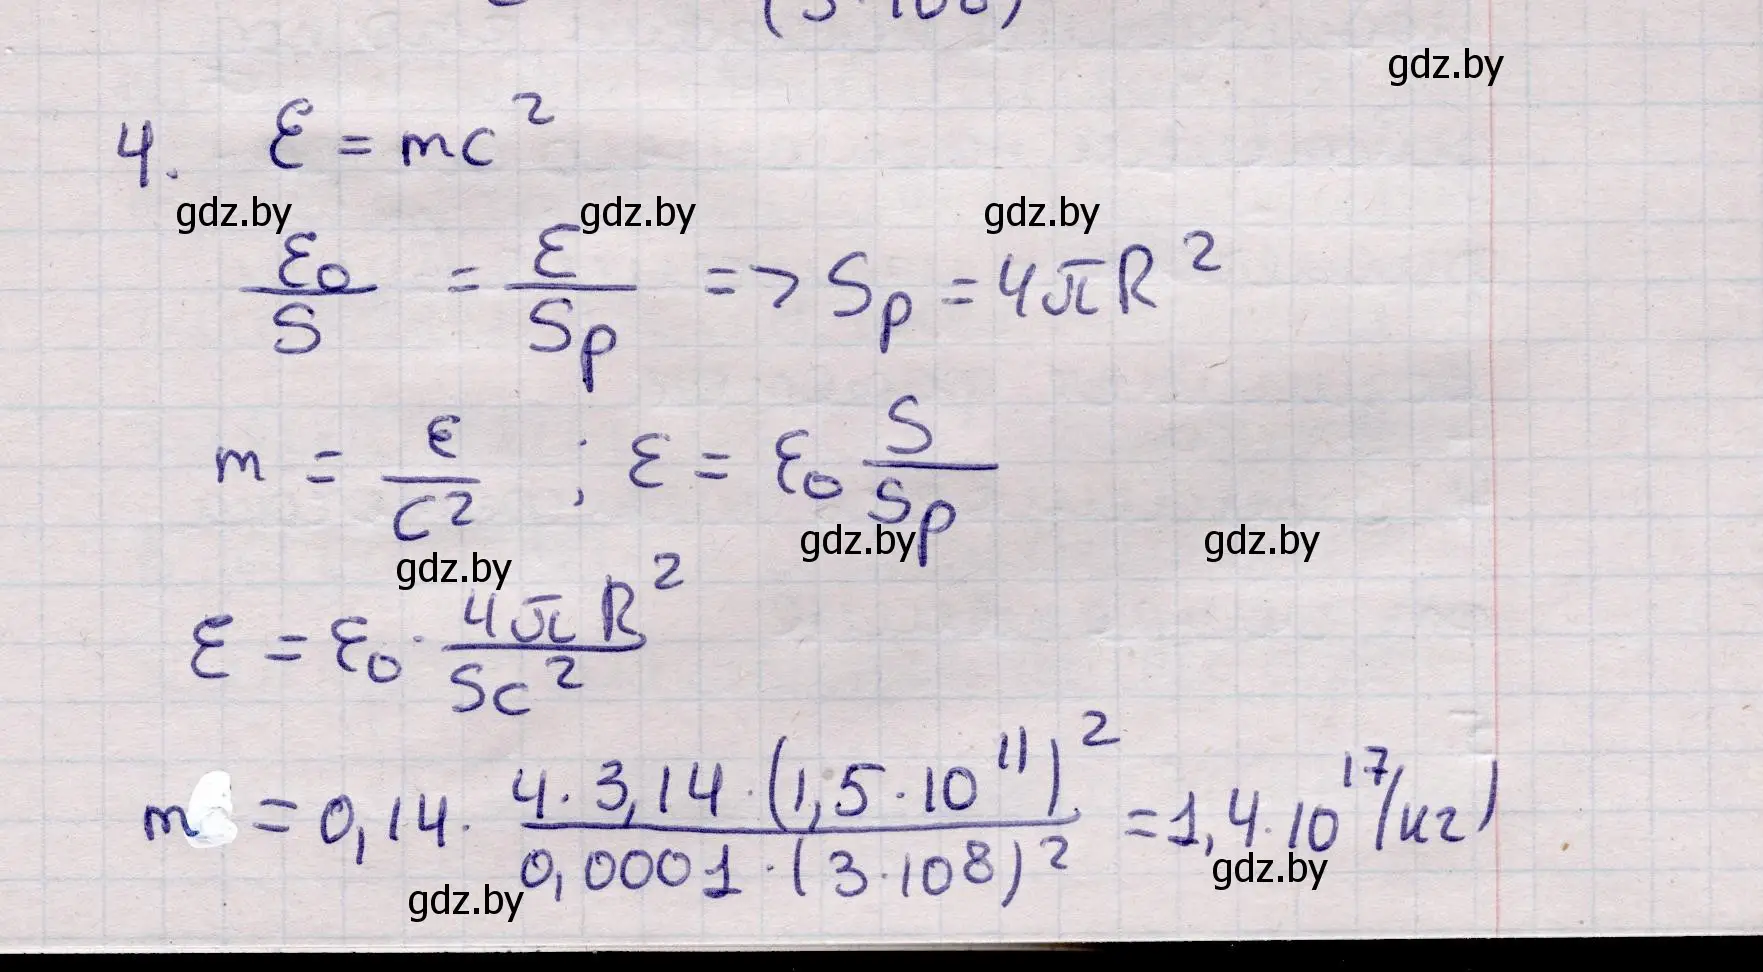 (3·10⁸)
gdz.by
4. ε = mc²
gdz.by gdz.by gdz.by
ε₀/S = ε/Sₚ => Sₚ = 4πR²
m = ε/c² ; ε = ε₀ S/Sₚ
gdz.by gdz.by gdz.by
ε = ε₀ · 4πR²/Sc²
m = 0,14 · 4·3,14·(1,5·10¹¹)²/0,0001·(3·10⁸)² = 1,4·10¹⁷(кг)
gdz.by gdz.by